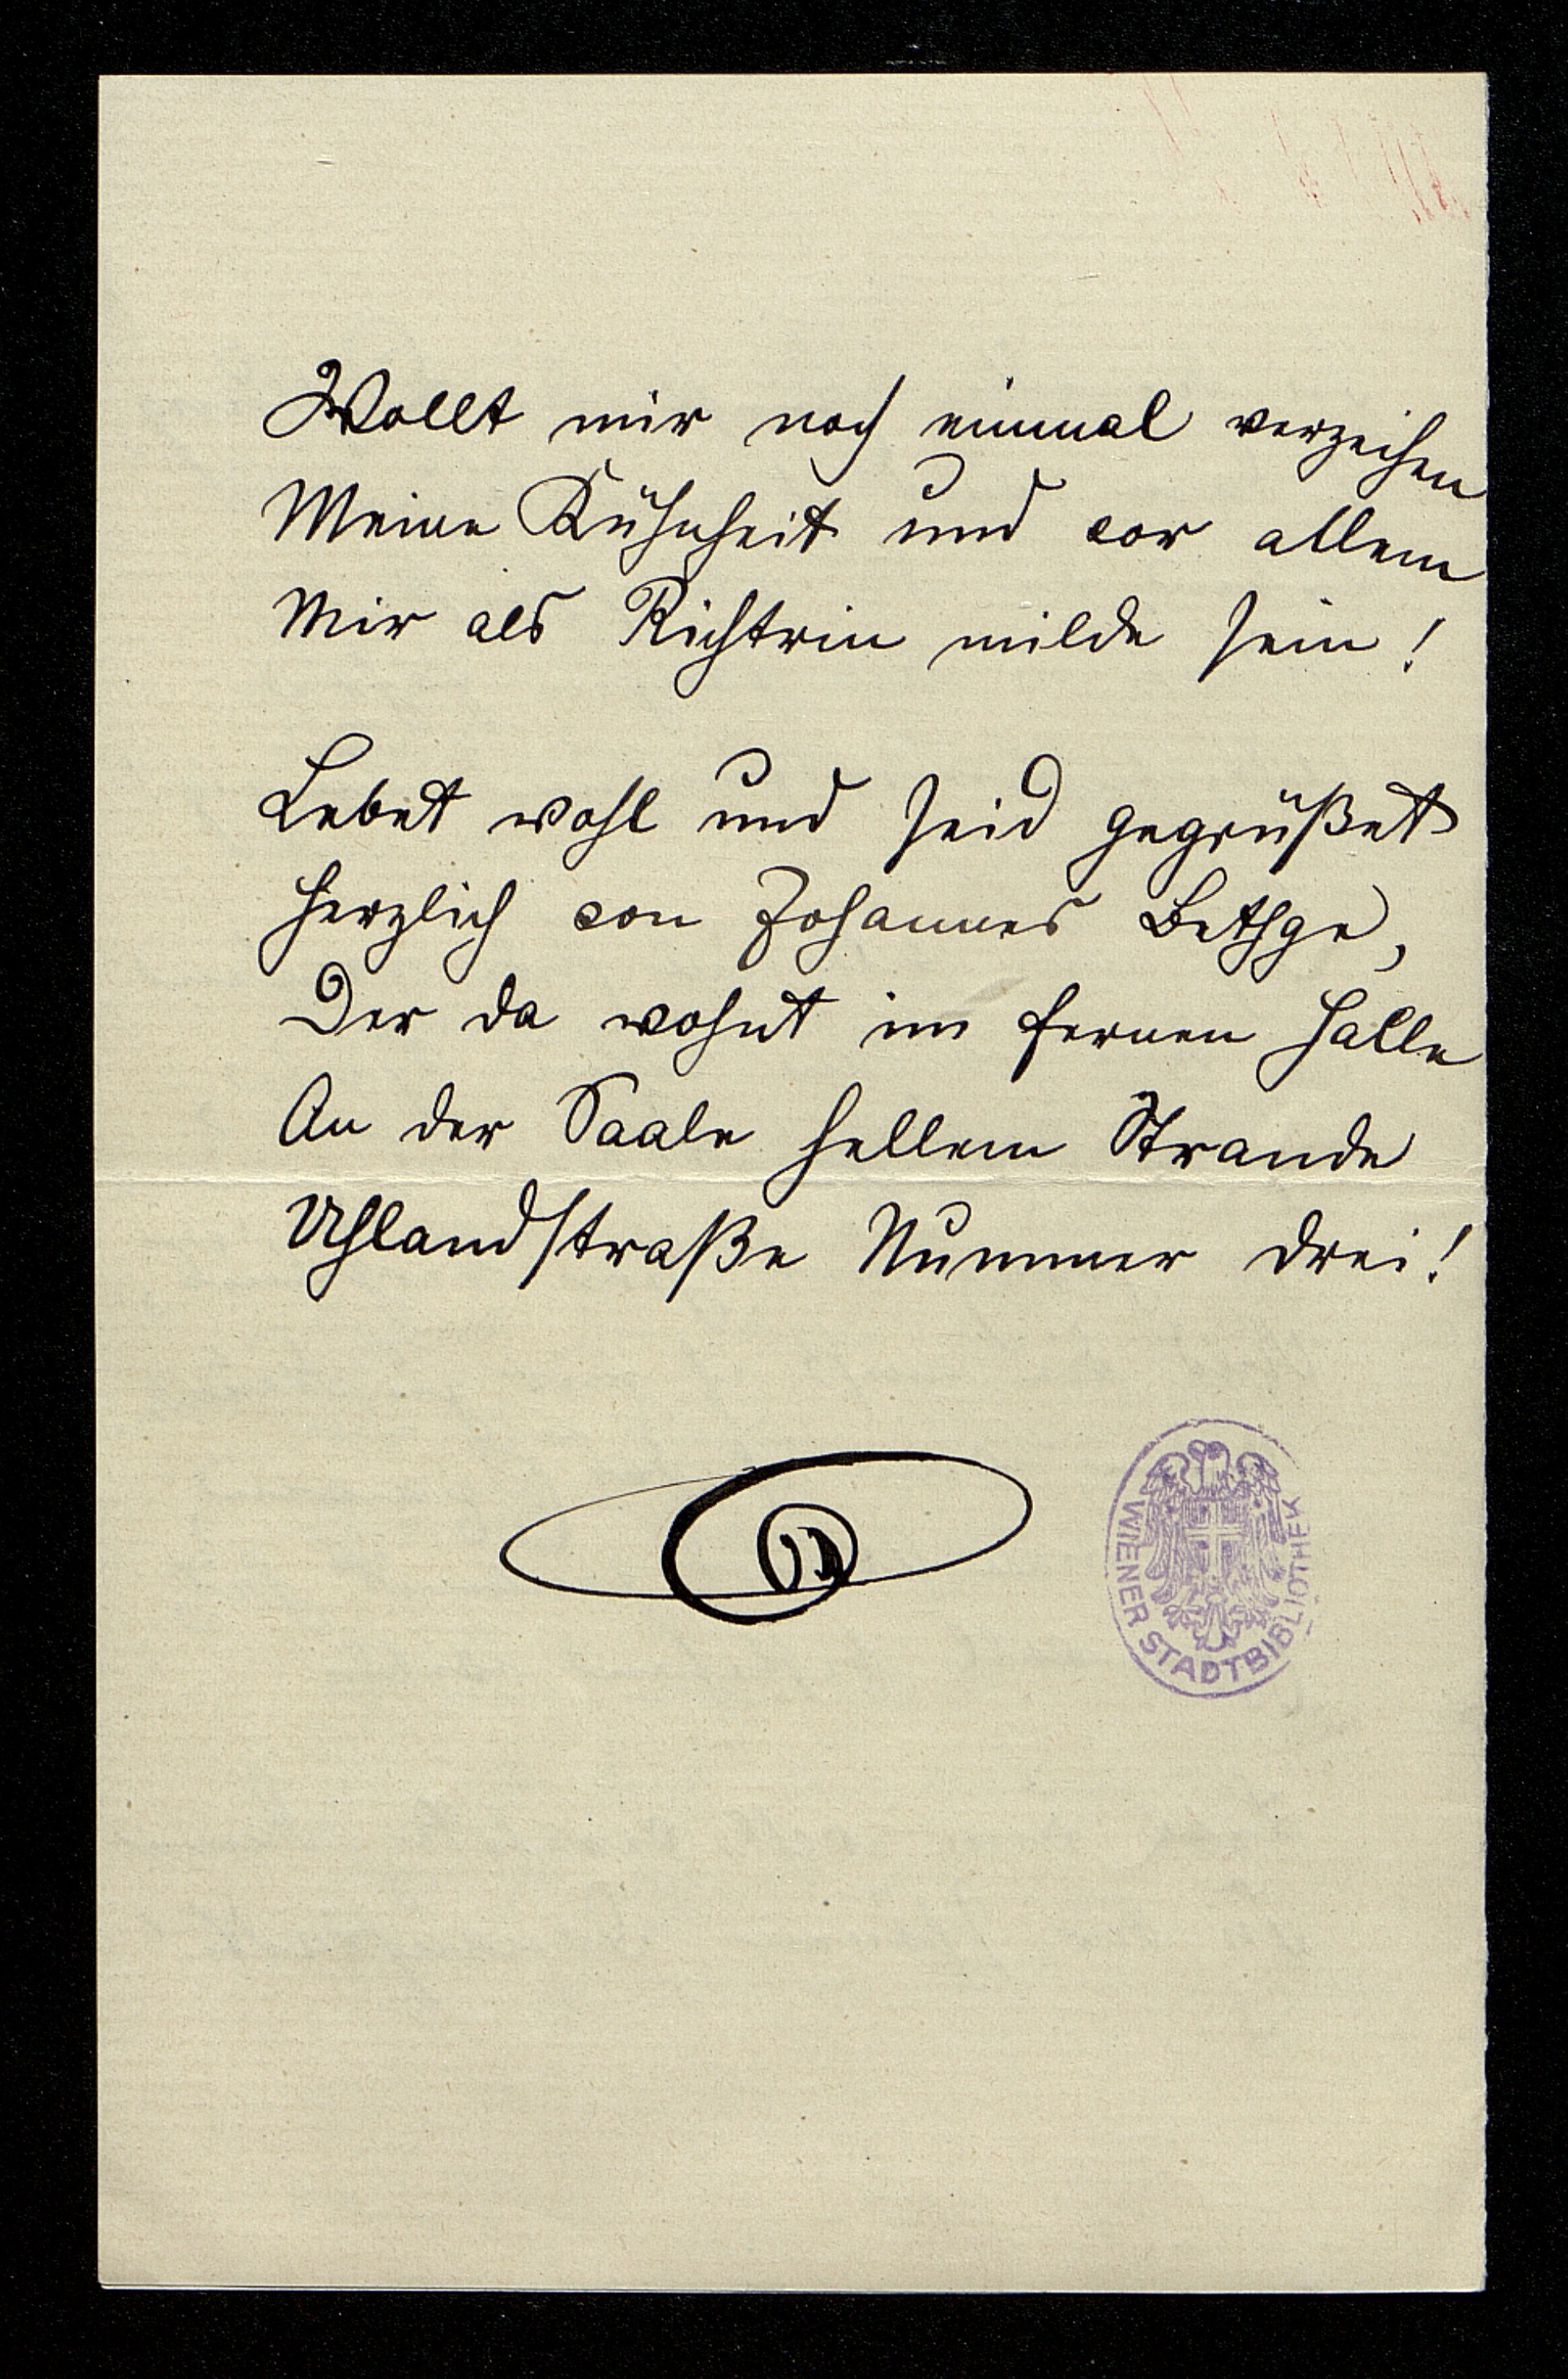 Wollt mir noch einmal verzeihen
Meine Kühnheit und vor allem
Mir als Richtrin milde sein!
Lebet wohl und seid gegrüßet
Herzlich von Johannes Bethge,
Der da wohnt im fernen Halle
An der Saale hellem Strande
Uhlandstraße Nummer drei!
WIENER STADTBIBLIOTHEK